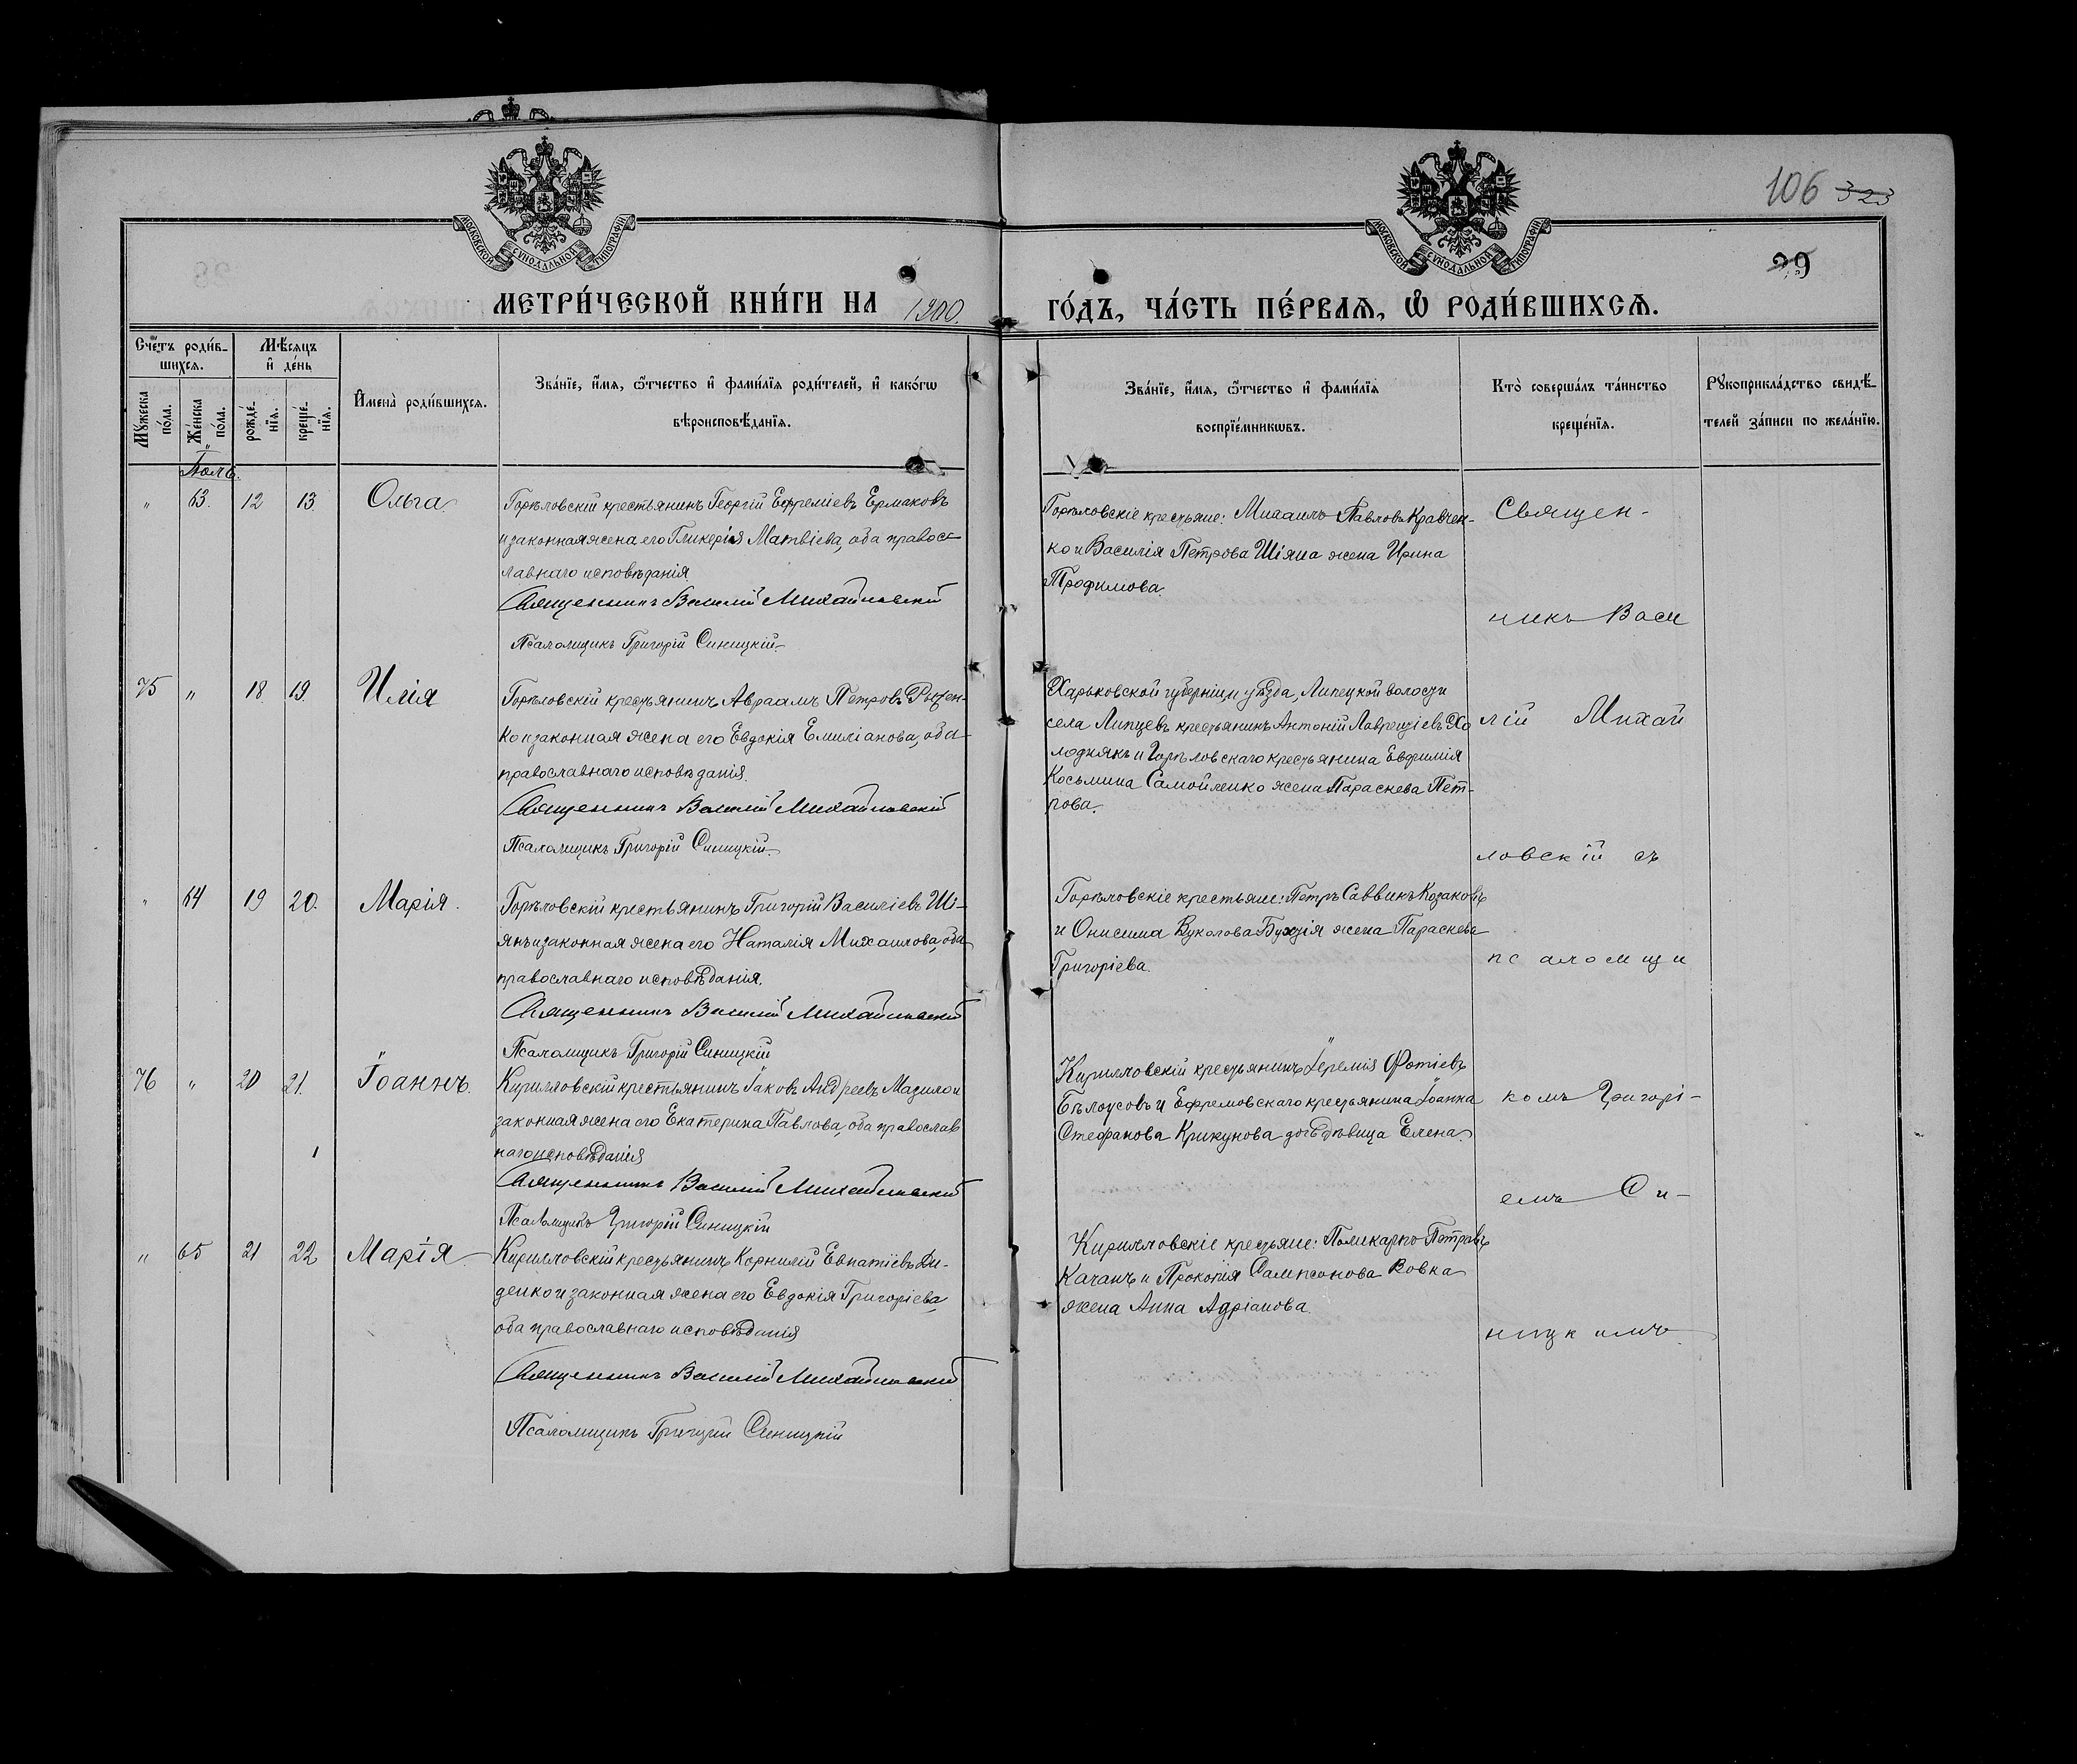 МОСКОВСКОЙ СУНОДАЛЬНОЙ ТИПОГРАФІИ
МОСКОВСКОЙ СУНОДАЛЬНОЙ ТИПОГРАФІИ
106 323
29
МЕТРИ́ЧЕСКОЙ КНИ́ГИ НА 1900.
ГО́ДЪ, ЧА́СТЬ ПЕ́РВАѦ, Ѡ҆ РОДИ́ВШИХСѦ.
Сче́тъ роди́вшихсѧ.
Мѣ́сѧцъ и҆ де́нь
Мꙋ́жеска по́ла.
Же́нска по́ла.
рожде́нїѧ.
креще́нїѧ.
И҆мена̀ роди́вшихсѧ.
Зва́нїе, и҆́мѧ, ѻ҆́тчество и҆ фами́лїѧ роди́телей, и҆ како́гѡ
вѣроисповѣ́данїѧ.
Зва́нїе, и҆́мѧ, ѻ҆́тчество и҆ фами́лїѧ
воспрїе́мникѡвъ.
Кто̀ соверша́лъ та́инство
креще́нїѧ.
Рꙋкоприкла́дство свидѣ́-
телей за́писи по жела́нїю.
"
63.
12
13
Ольга
Горѣловскій крестьянинъ Георгій Ефреміевъ Ермаковъ
и законная жена его Гликерія Матвіева, оба правос-
лавнаго исповѣданія
Священникъ Василій Михайловскій
Псаломщикъ Григорій Синицкій
Горѣловскіе крестьяне: Михаилъ Павловъ Кравчен-
ко и Василія Петрова Шіяна жена Ирина
Трофимова.
75
"
18
19.
Илія
Горѣловскій крестьянинъ Авраамъ Петровъ
ко и законная жена его Евдокія Емиліанова, оба
православнаго исповѣданія.
Священникъ Василій Михайловскій
Псаломщикъ Григорій Синицкій
Харьковской губерніи и уѣзда, Липецкой волости
села Липцевъ крестьянинъ Антоній Лаврентіевъ Хо
лоднякъ и Горѣловскаго крестьянина Евфимія
Косьмина Самойленко жена Параскева Пет-
рова.
"
64
19
20.
Марія.
Горѣловскій крестьянинъ Григорій Василіевъ Ші-
янъ и законная жена его Наталія Михаилова, оба
православнаго исповѣданія.
Священникъ Василій Михайловскій
Псаломщикъ Григорій Синицкій
Горѣловскіе крестьяне: Петръ Саввинъ Козаковъ
и Онисима Вуколова жена Параскева
Григоріева.
76
"
20
21.
Іоаннъ.
Кирилловскій крестьянинъ Іаковъ Андреевъ Мазило и
законная жена его Екатерина Павлова, оба православ
наго исповѣданія
Священникъ Василій Михайловскій
Псаломщикъ Григорій Синицкій
Кирилловскій крестьянинъ Іеремія Фотіевъ
Бѣлоусовъ и Ефремовскаго крестьянина Іоанна
Стефанова Крикунова дочь дѣвица Елена.
"
65
21
22
Марія
Кирилловскій крестьянинъ Корнилій Евпатіевъ Ди-
денко и законная жена его Евдокія Григоріева,
оба православнаго исповѣданія
Священникъ Василій Михайловскій
Псаломщикъ Григорій Синицкій
Кирилловскіе крестьяне: Поликарпъ Петровъ
Качанъ и Прокопія Сампсонова Вовка
жена Анна Адріанова.
Священ-
никъ Васи
лій Михай
ловскій съ
псаломщи
комъ Григорі-
емъ Си-
ницкимъ.